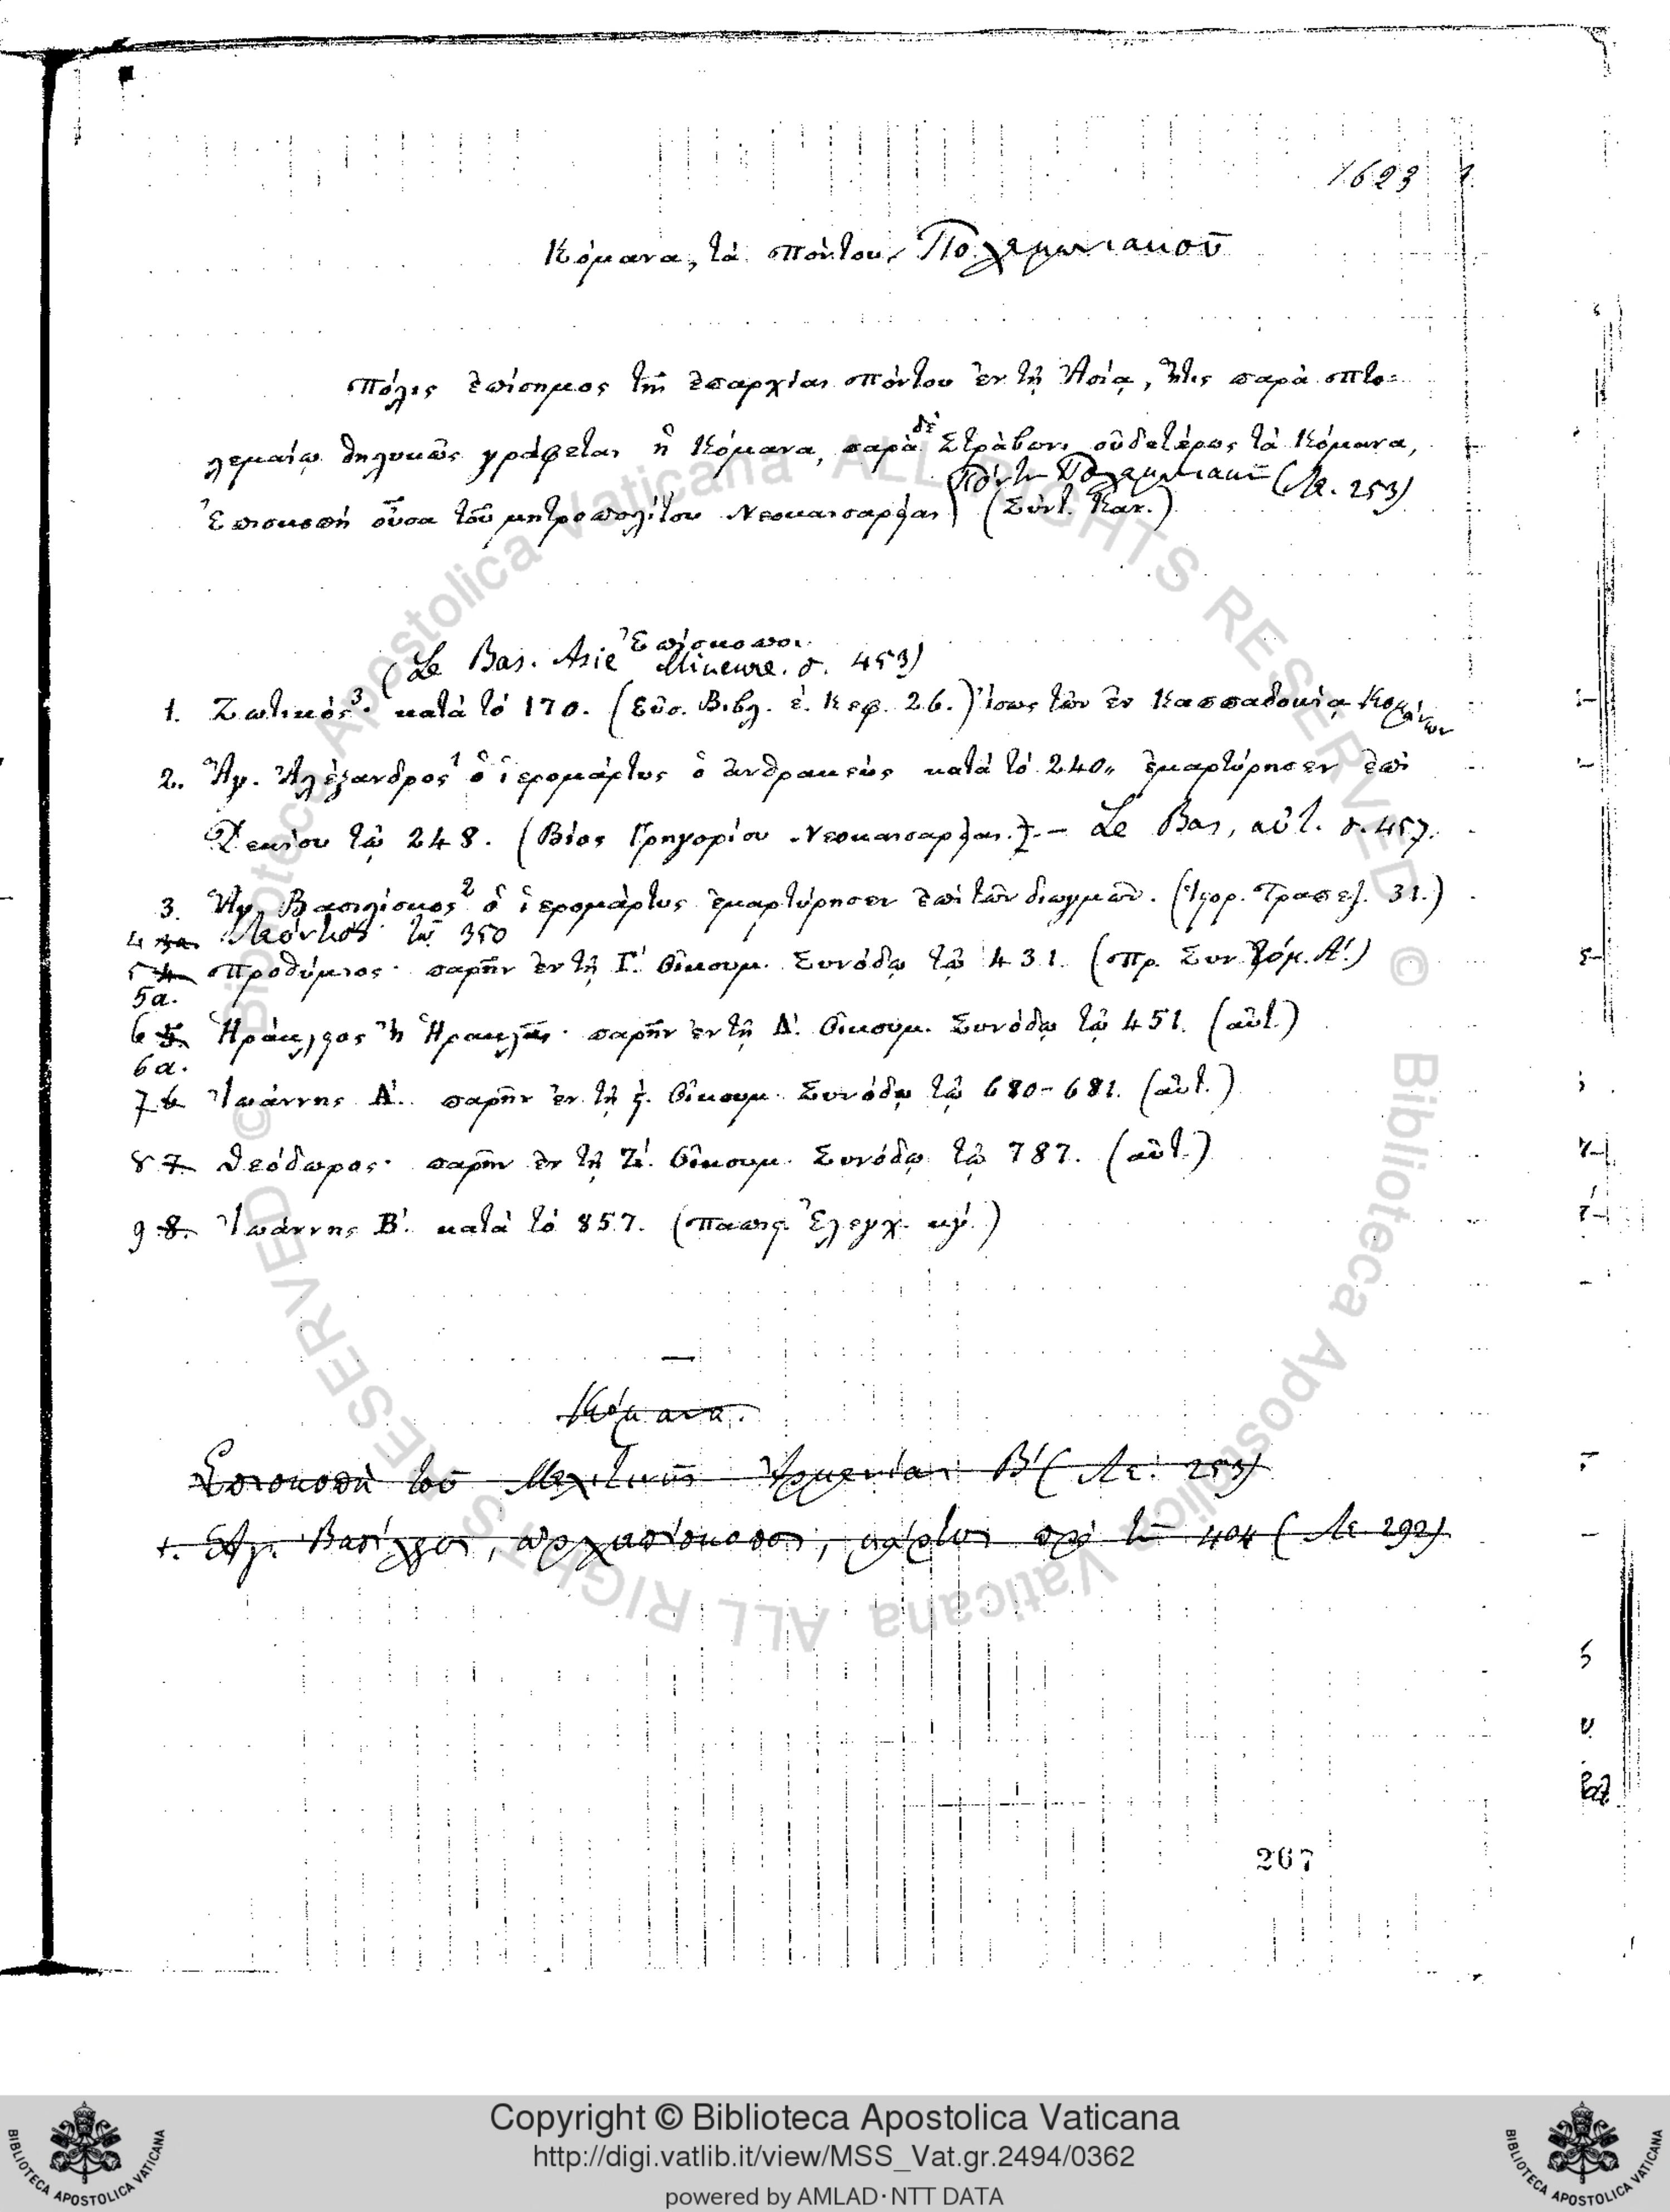 1623
Κόμανα, τὰ Πόντου Πολεμωνιακοῦ
Πόλις ἐπίσημος τῆς ἐπαρχίας Πόντου ἐν τῇ Ἀσίᾳ, ἥτις παρὰ Πτο-
λεμαίῳ θηλυκῶς γράφεται ἡ Κόμανα, παρὰ δὲ Στράβωνι οὐδετέρως τὰ Κόμανα,
Πόντου Πολεμωνιακοῦ (Le. 253)
Ἐπισκοπὴ οὖσα τοῦ μητροπολίτου Νεοκαισαρείας (Σύντ. Καν.)
Ἐπίσκοποι
(Le Bas. Asie Mineure. σ. 453)
1. Ζωτικός³· κατὰ τὸ 170. (Εὐσ. Βιβλ. έ. Κεφ. 26.) ἴσως τῶν ἐν Καππαδοκίᾳ Κομάνων
2. Ἅγ. Ἀλέξανδρος¹ ὁ ἱερομάρτυς ὁ ἀνθρακεὺς κατὰ τὸ 240, ἐμαρτύρησεν ἐπὶ
Δεκίου τῷ 248. (Βίος Γρηγορίου Νεοκαισαρείας.) – Le Bas, αὐτ. σ. 457.
3. Ἅγ. Βασιλίσκος² ὁ ἱερομάρτυς ἐμαρτύρησεν ἐπὶ τῶν διωγμῶν. (Ἱστορ. Τραπεζ. 31.)
4 3a. Λεόντιος τῷ 350
5 4 Προθύμιος· παρῆν ἐν τῇ Γ΄. Οἰκουμ. Συνόδῳ τῷ 431. (Πρ. Συν. Τόμ. Α΄.)
5a.
6 5. Ἡράκλειος ἢ Ἡρακλᾶς· παρῆν ἐν τῇ Δ΄. Οἰκουμ. Συνόδῳ τῷ 451. (αὐτ.)
6a.
7 6 Ἰωάννης Α΄. παρῆν ἐν τῇ ϛ΄. Οἰκουμ. Συνόδῳ τῷ 680-681. (αὐτ.)
8 7. Θεόδωρος· παρῆν ἐν τῇ Ζ΄. Οἰκουμ. Συνόδῳ τῷ 787. (αὐτ.)
9 8. Ἰωάννης Β΄. κατὰ τὸ 857. (Παπις. Ἔλεγχ. κγ΄.)
Κόμανα.
Ἐπισκοπὴ τοῦ Μελιτινῆς Ἀρμενίας Β΄ (Le. 253)
1. Ἅγ. Βασίλειος, ἀρχιεπίσκοπος, μάρτυς πρὸ τοῦ 404 (Le 292)
267
Copyright © Biblioteca Apostolica Vaticana
http://digi.vatlib.it/view/MSS_Vat.gr.2494/0362
powered by AMLAD·NTT DATA
BIBLIOTECA APOSTOLICA VATICANA
BIBLIOTECA APOSTOLICA VATICANA
© Biblioteca Apostolica Vaticana ALL RIGHTS RESERVED © Biblioteca Apostolica Vaticana ALL RIGHTS RESERVED